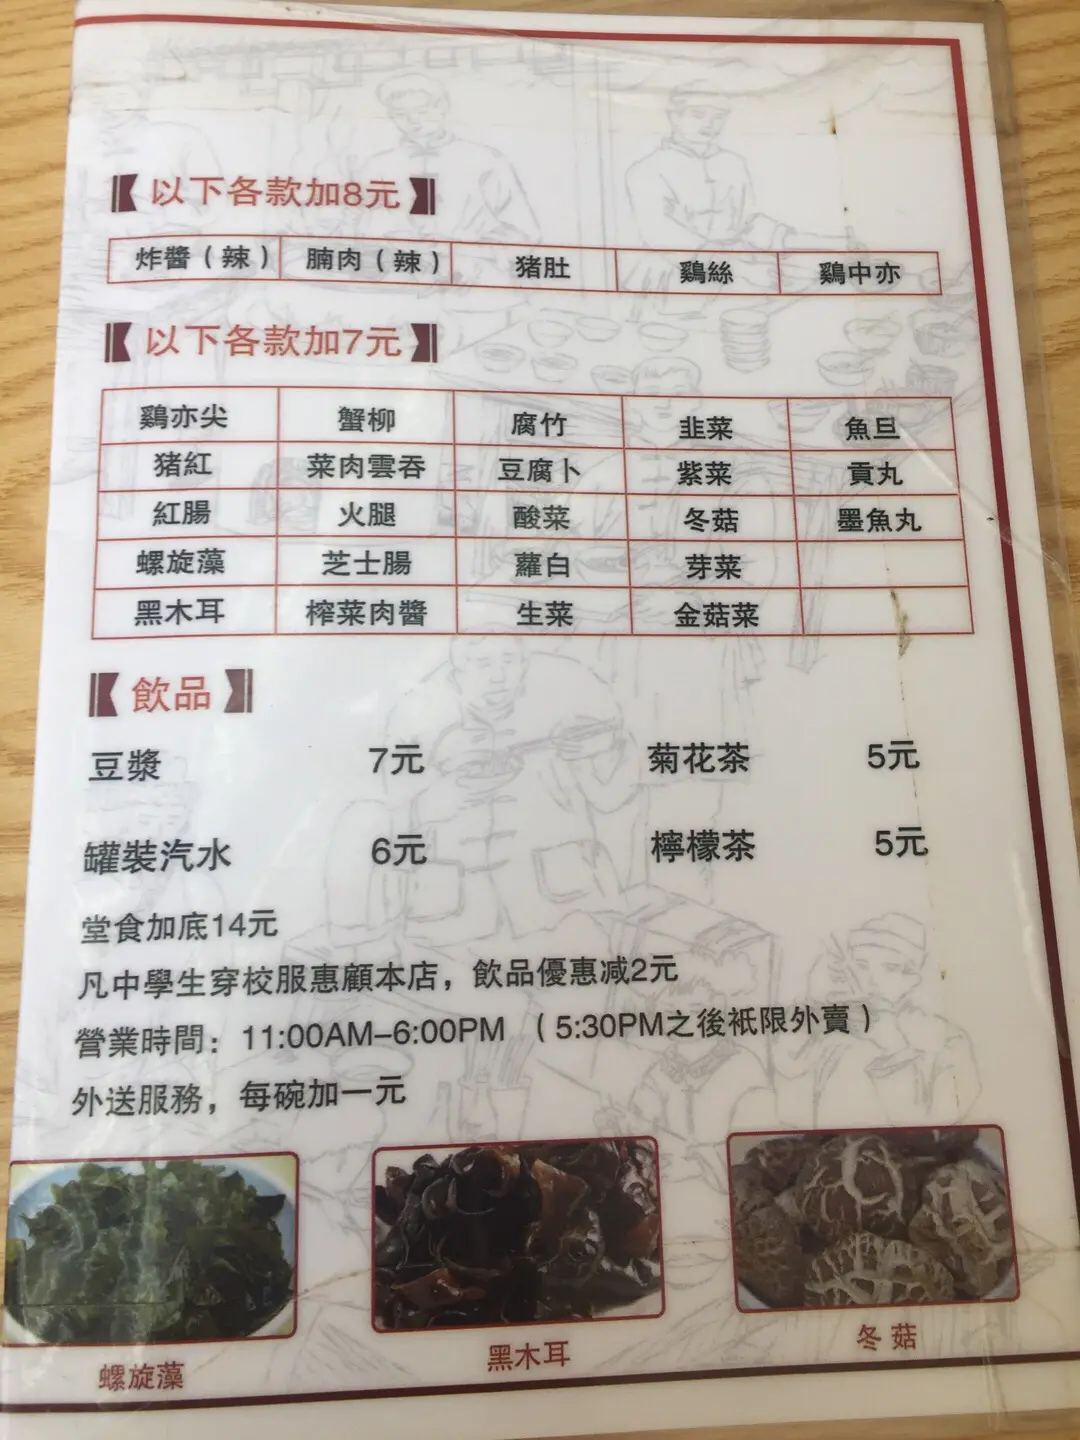 【以下各款加8元】
炸醬（辣） 腩肉（辣） 猪肚 鷄絲 鷄中亦
【以下各款加7元】
鷄亦尖 蟹柳 腐竹 韭菜 魚旦
猪紅 菜肉雲吞 豆腐卜 紫菜 貢丸
紅腸 火腿 酸菜 冬菇 墨魚丸
螺旋藻 芝士腸 蘿白 芽菜
黑木耳 榨菜肉醬 生菜 金菇菜
【飲品】
豆漿 7元 菊花茶 5元
罐裝汽水 6元 檸檬茶 5元
堂食加底14元
凡中學生穿校服惠顧本店，飲品優惠减2元
營業時間：11:00AM–6:00PM （5:30PM之後衹限外賣）
外送服務，每碗加一元
螺旋藻 黑木耳 冬菇